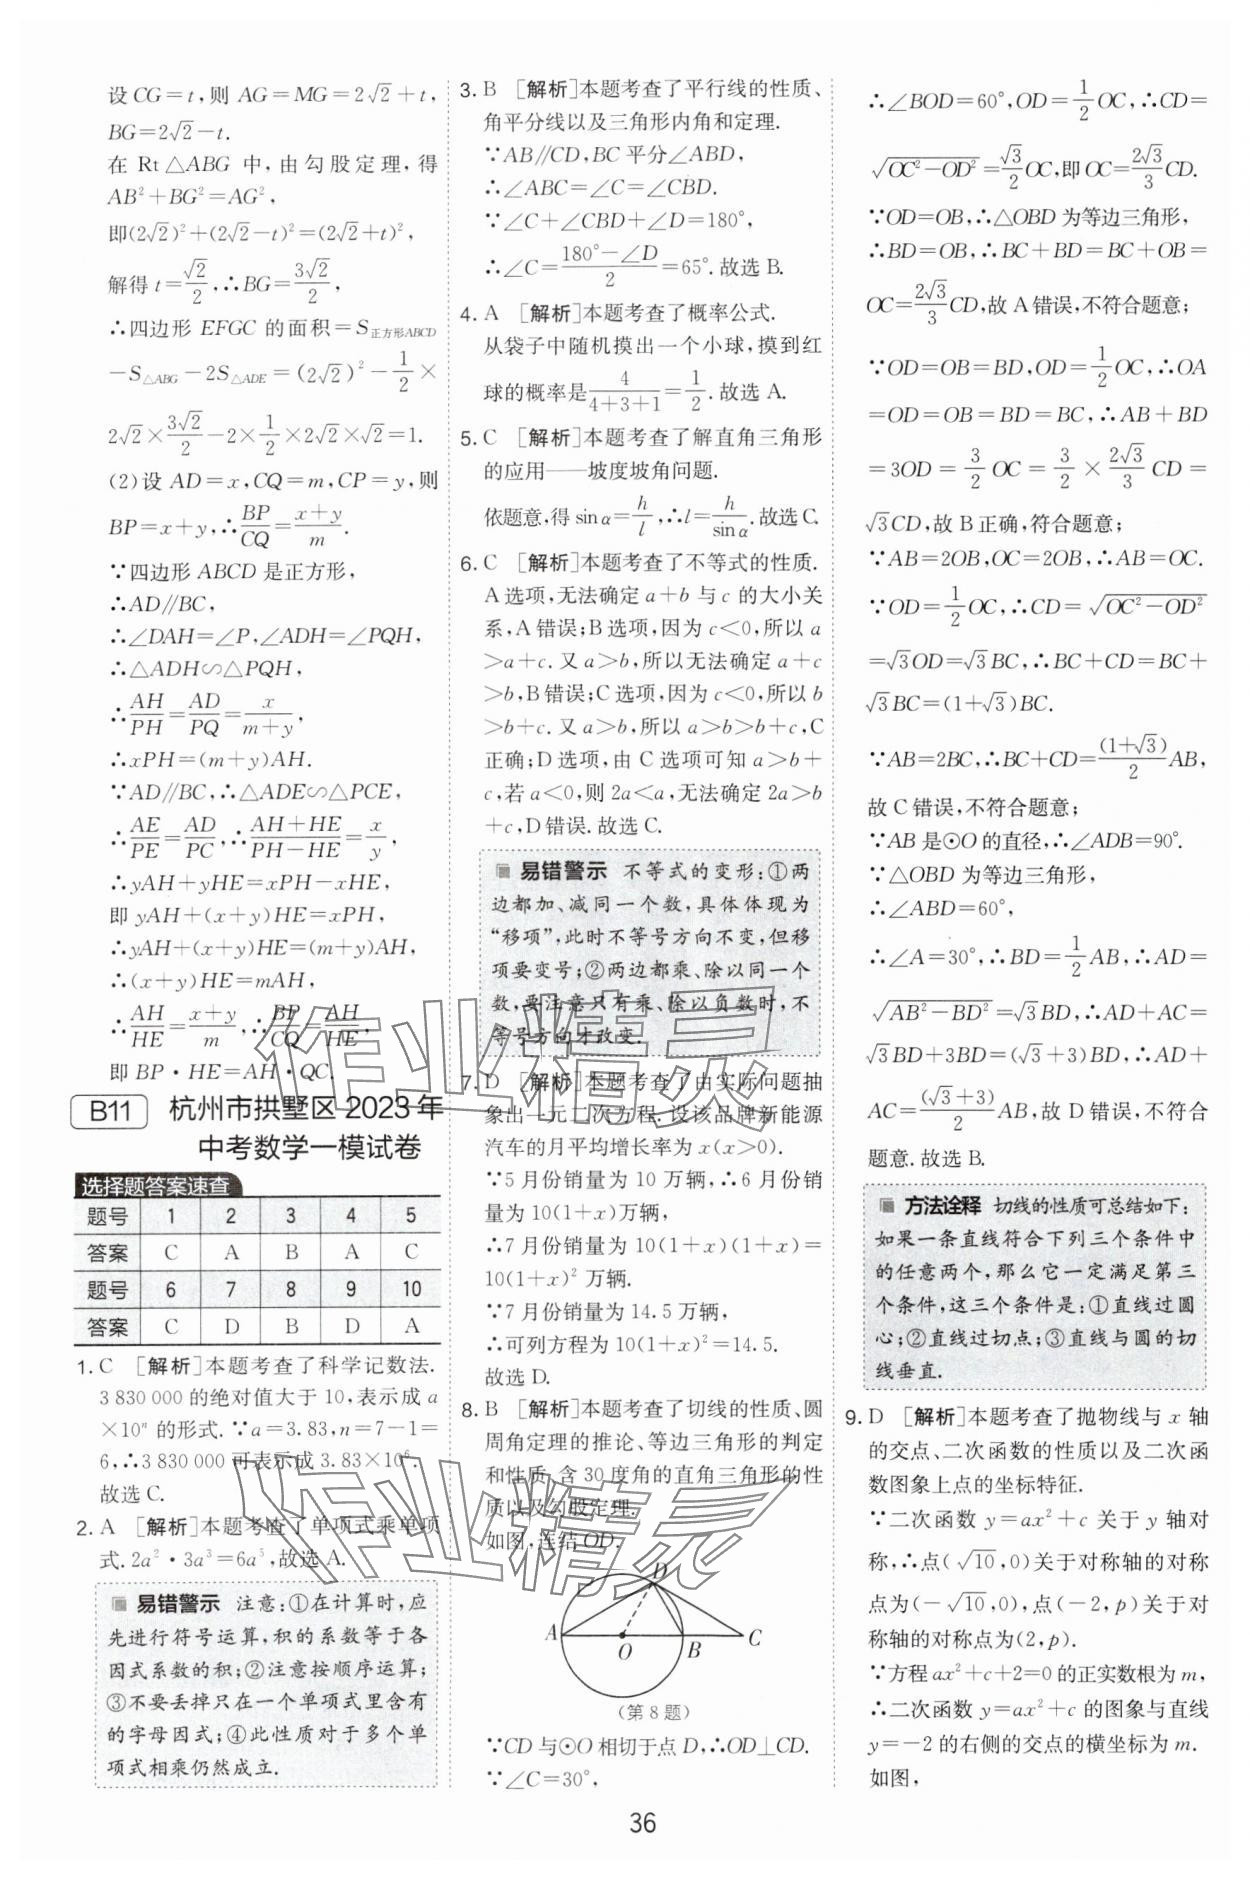 设CG=t,则 AG=MG=2√2+t,
BG=2√2-t.
在 Rt△ABG 中,由勾股定理,得
AB²+BG²=AG²,
即(2√2)²+(2√2-t)²=(2√2+t)²,
解得 t=√2/2,∴BG=3√2/2,
∴四边形 EFGC 的面积=S正方形ABCD
-S△ABG-2S△ADE=(2√2)²-1/2×
2√2×3√2/2-2×1/2×2√2×√2=1.
(2)设 AD=x,CQ=m,CP=y,则
BP=x+y,∴BP/CQ=(x+y)/m.
∵四边形 ABCD 是正方形,
∴AD∥BC,
∴∠DAH=∠P,∠ADH=∠PQH,
∴△ADH∽△PQH,
∴AH/PH=AD/PQ=x/(m+y),
∴xPH=(m+y)AH.
∵AD∥BC,∴△ADE∽△PCE,
∴AE/PE=AD/PC,∴(AH+HE)/(PH-HE)=x/y,
∴yAH+yHE=xPH-xHE,
即 yAH+(x+y)HE=xPH,
∴yAH+(x+y)HE=(m+y)AH,
∴(x+y)HE=mAH,
∴AH/HE=(x+y)/m,∴BP/CQ=AH/HE,
即 BP·HE=AH·QC.
B11 杭州市拱墅区 2023 年
中考数学一模试卷
选择题答案速查
题号 1 2 3 4 5
答案 C A B A C
题号 6 7 8 9 10
答案 C D B D A
1. C [解析]本题考查了科学记数法.
3 830 000 的绝对值大于 10,表示成 a
×10ⁿ 的形式.∵a=3.83,n=7-1=
6,∴3 830 000 可表示成 3.83×10⁶.
故选 C.
2. A [解析]本题考查了单项式乘单项
式.2a²·3a³=6a⁵,故选 A.
易错警示 注意:①在计算时,应
先进行符号运算,积的系数等于各
因式系数的积;②注意按顺序运算;
③不要丢掉只在一个单项式里含有
的字母因式;④此性质对于多个单
项式相乘仍然成立.
3. B [解析]本题考查了平行线的性质、
角平分线以及三角形内角和定理.
∵AB∥CD,BC 平分∠ABD,
∴∠ABC=∠C=∠CBD.
∵∠C+∠CBD+∠D=180°,
∴∠C=(180°-∠D)/2=65°.故选 B.
4. A [解析]本题考查了概率公式.
从袋子中随机摸出一个小球,摸到红
球的概率是4/(4+3+1)=1/2.故选 A.
5. C [解析]本题考查了解直角三角形
的应用——坡度坡角问题.
依题意,得 sin α=h/l,∴l=h/sin α.故选C.
6. C [解析]本题考查了不等式的性质.
A 选项,无法确定 a+b 与 c 的大小关
系,A 错误;B 选项,因为 c<0,所以 a
>a+c.又 a>b,所以无法确定 a+c
>b,B 错误;C 选项,因为 c<0,所以 b
>b+c.又 a>b,所以 a>b>b+c,C
正确;D 选项,由 C 选项可知 a>b+
c,若 a<0,则 2a<a,无法确定 2a>b
+c,D 错误.故选 C.
易错警示 不等式的变形:①两
边都加、减同一个数,具体体现为
“移项”,此时不等号方向不变,但移
项要变号;②两边都乘、除以同一个
数,要注意只有乘、除以负数时,不
等号方向才改变.
7. D [解析]本题考查了由实际问题抽
象出一元二次方程.设该品牌新能源
汽车的月平均增长率为 x(x>0).
∵5 月份销量为 10 万辆,∴6 月份销
量为 10(1+x)万辆,
∴7 月份销量为 10(1+x)(1+x)=
10(1+x)² 万辆.
∵7 月份销量为 14.5 万辆,
∴可列方程为 10(1+x)²=14.5.
故选 D.
8. B [解析]本题考查了切线的性质、圆
周角定理的推论、等边三角形的判定
和性质、含 30 度角的直角三角形的性
质以及勾股定理.
如图,连结 OD.
A O B C D
(第 8 题)
∵CD 与⊙O 相切于点 D,∴OD⊥CD.
∵∠C=30°,
∴∠BOD=60°,OD=1/2OC,∴CD=
√(OC²-OD²)=√3/2OC,即 OC=2√3/3CD.
∵OD=OB,∴△OBD 为等边三角形,
∴BD=OB,∴BC+BD=BC+OB=
OC=2√3/3CD,故 A 错误,不符合题意;
∵OD=OB=BD,OD=1/2OC,∴OA
=OD=OB=BD=BC,∴AB+BD
=3OD=3/2OC=3/2×2√3/3CD=
√3CD,故 B 正确,符合题意;
∵AB=2OB,OC=2OB,∴AB=OC.
∵OD=1/2OC,∴CD=√(OC²-OD²)
=√3OD=√3BC,∴BC+CD=BC+
√3BC=(1+√3)BC.
∵AB=2BC,∴BC+CD=(1+√3)/2AB,
故 C 错误,不符合题意;
∵AB 是⊙O 的直径,∴∠ADB=90°.
∵△OBD 为等边三角形,
∴∠ABD=60°,
∴∠A=30°,∴BD=1/2AB,∴AD=
√(AB²-BD²)=√3BD,∴AD+AC=
√3BD+3BD=(√3+3)BD,∴AD+
AC=(√3+3)/2AB,故 D 错误,不符合
题意.故选 B.
方法诠释 切线的性质可总结如下:
如果一条直线符合下列三个条件中
的任意两个,那么它一定满足第三
个条件,这三个条件是:①直线过圆
心;②直线过切点;③直线与圆的切
线垂直.
9. D [解析]本题考查了抛物线与 x 轴
的交点、二次函数的性质以及二次函
数图象上点的坐标特征.
∵二次函数 y=ax²+c 关于 y 轴对
称,∴点(√10,0)关于对称轴的对称
点为(-√10,0),点(-2,p)关于对
称轴的对称点为(2,p).
∵方程 ax²+c+2=0 的正实数根为 m,
∴二次函数 y=ax²+c 的图象与直线
y=-2 的右侧的交点的横坐标为 m.
如图,
36
作业精灵
作业精灵